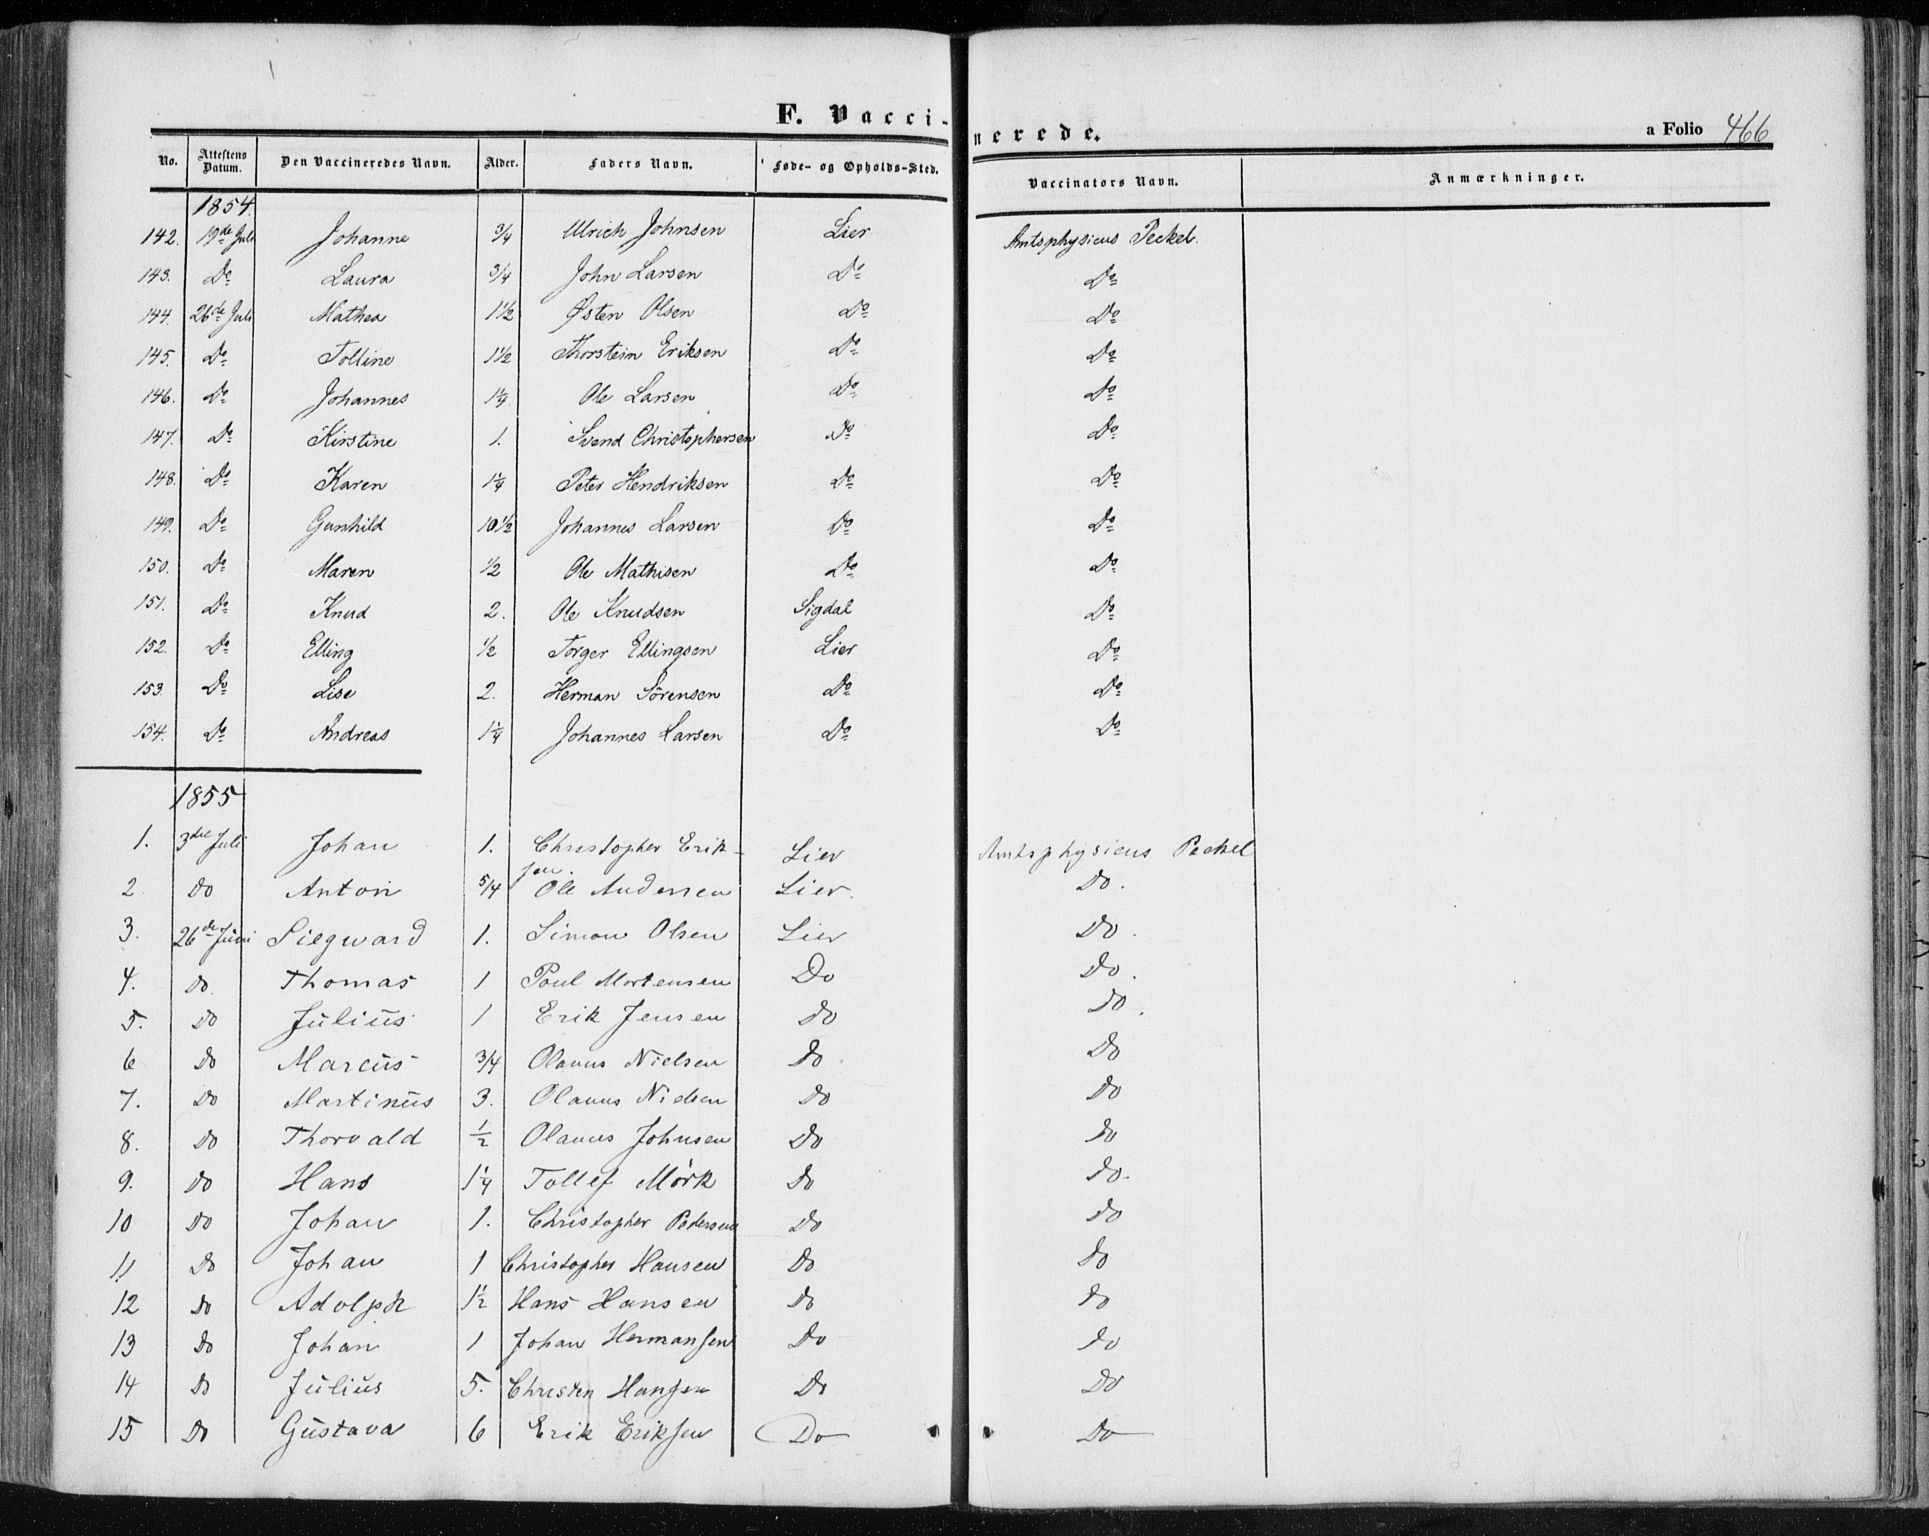 F. Vaccinerede.
a Folio 466
No. Attestens Datum. Den Vaccineredes Navn. Alder. Faders Navn. Føde- og Opholds-Sted. Vaccinators Navn. Anmærkninger.
1854.
142. 19de Juli Johanne 3/4 Ulrich Johnsen Lier Amtsphysicus Peckel.
143. Do Laura 3/4 John Larsen Do Do
144. 26de Juli Mathea 1 1/2 Østen Olsen Do Do
145. Do Tolline 1 1/2 Thorstein Eriksen Do Do
146. Do Johannes 1 1/4 Ole Larsen Do Do
147. Do Kirstine 1. Svend Christophersen Do Do
148. Do Karen 1 1/4 Peter Hendriksen Do Do
149. Do Gunhild 10 1/2 Johannes Larsen Do Do
150. Do Maren 1/2 Ole Mathisen Do Do
151. Do Knud 2. Ole Knudsen Sigdal Do
152. Do Elling 1/2 Torger Ellingsen Lier Do
153 Do Lise 2. Herman Sørensen Do Do
154. Do Andreas 1 1/4 Johannes Larsen Do Do
1855
1. 3die Juli Johan 1. Christopher Erik-
sen. Lier Amtsphysicus Peckel
2. Do Anton 5/4 Ole Andersen Lier. Do.
3. 26de Juni Siegward 1. Simon Olsen Lier Do.
4. Do Thomas 1 Poul Mortensen Do Do.
5. Do Julius 1 Erik Jensen Do Do.
6 Do Marcus 3/4 Olaves Nielsen Do Do
7. Do Martinus 3. Olaves Nielsen Do Do
8. Do Thorvald 1/2 Olaves Johnsen Do Do
9. Do Hans 1 1/4 Tollef Mørk Do Do.
10 Do Johan 1. Christopher Pedersen Do Do
11 Do Johan 1 Christopher Hansen Do Do
12 Do Adolph 1 1/2 Hans Hansen Do Do
13 Do Johan 1 Johan Hermansen Do Do
14 Do Julius 5. Christen Hansen Do Do
15 Do Gustava 6 Erik Eriksen Do Do